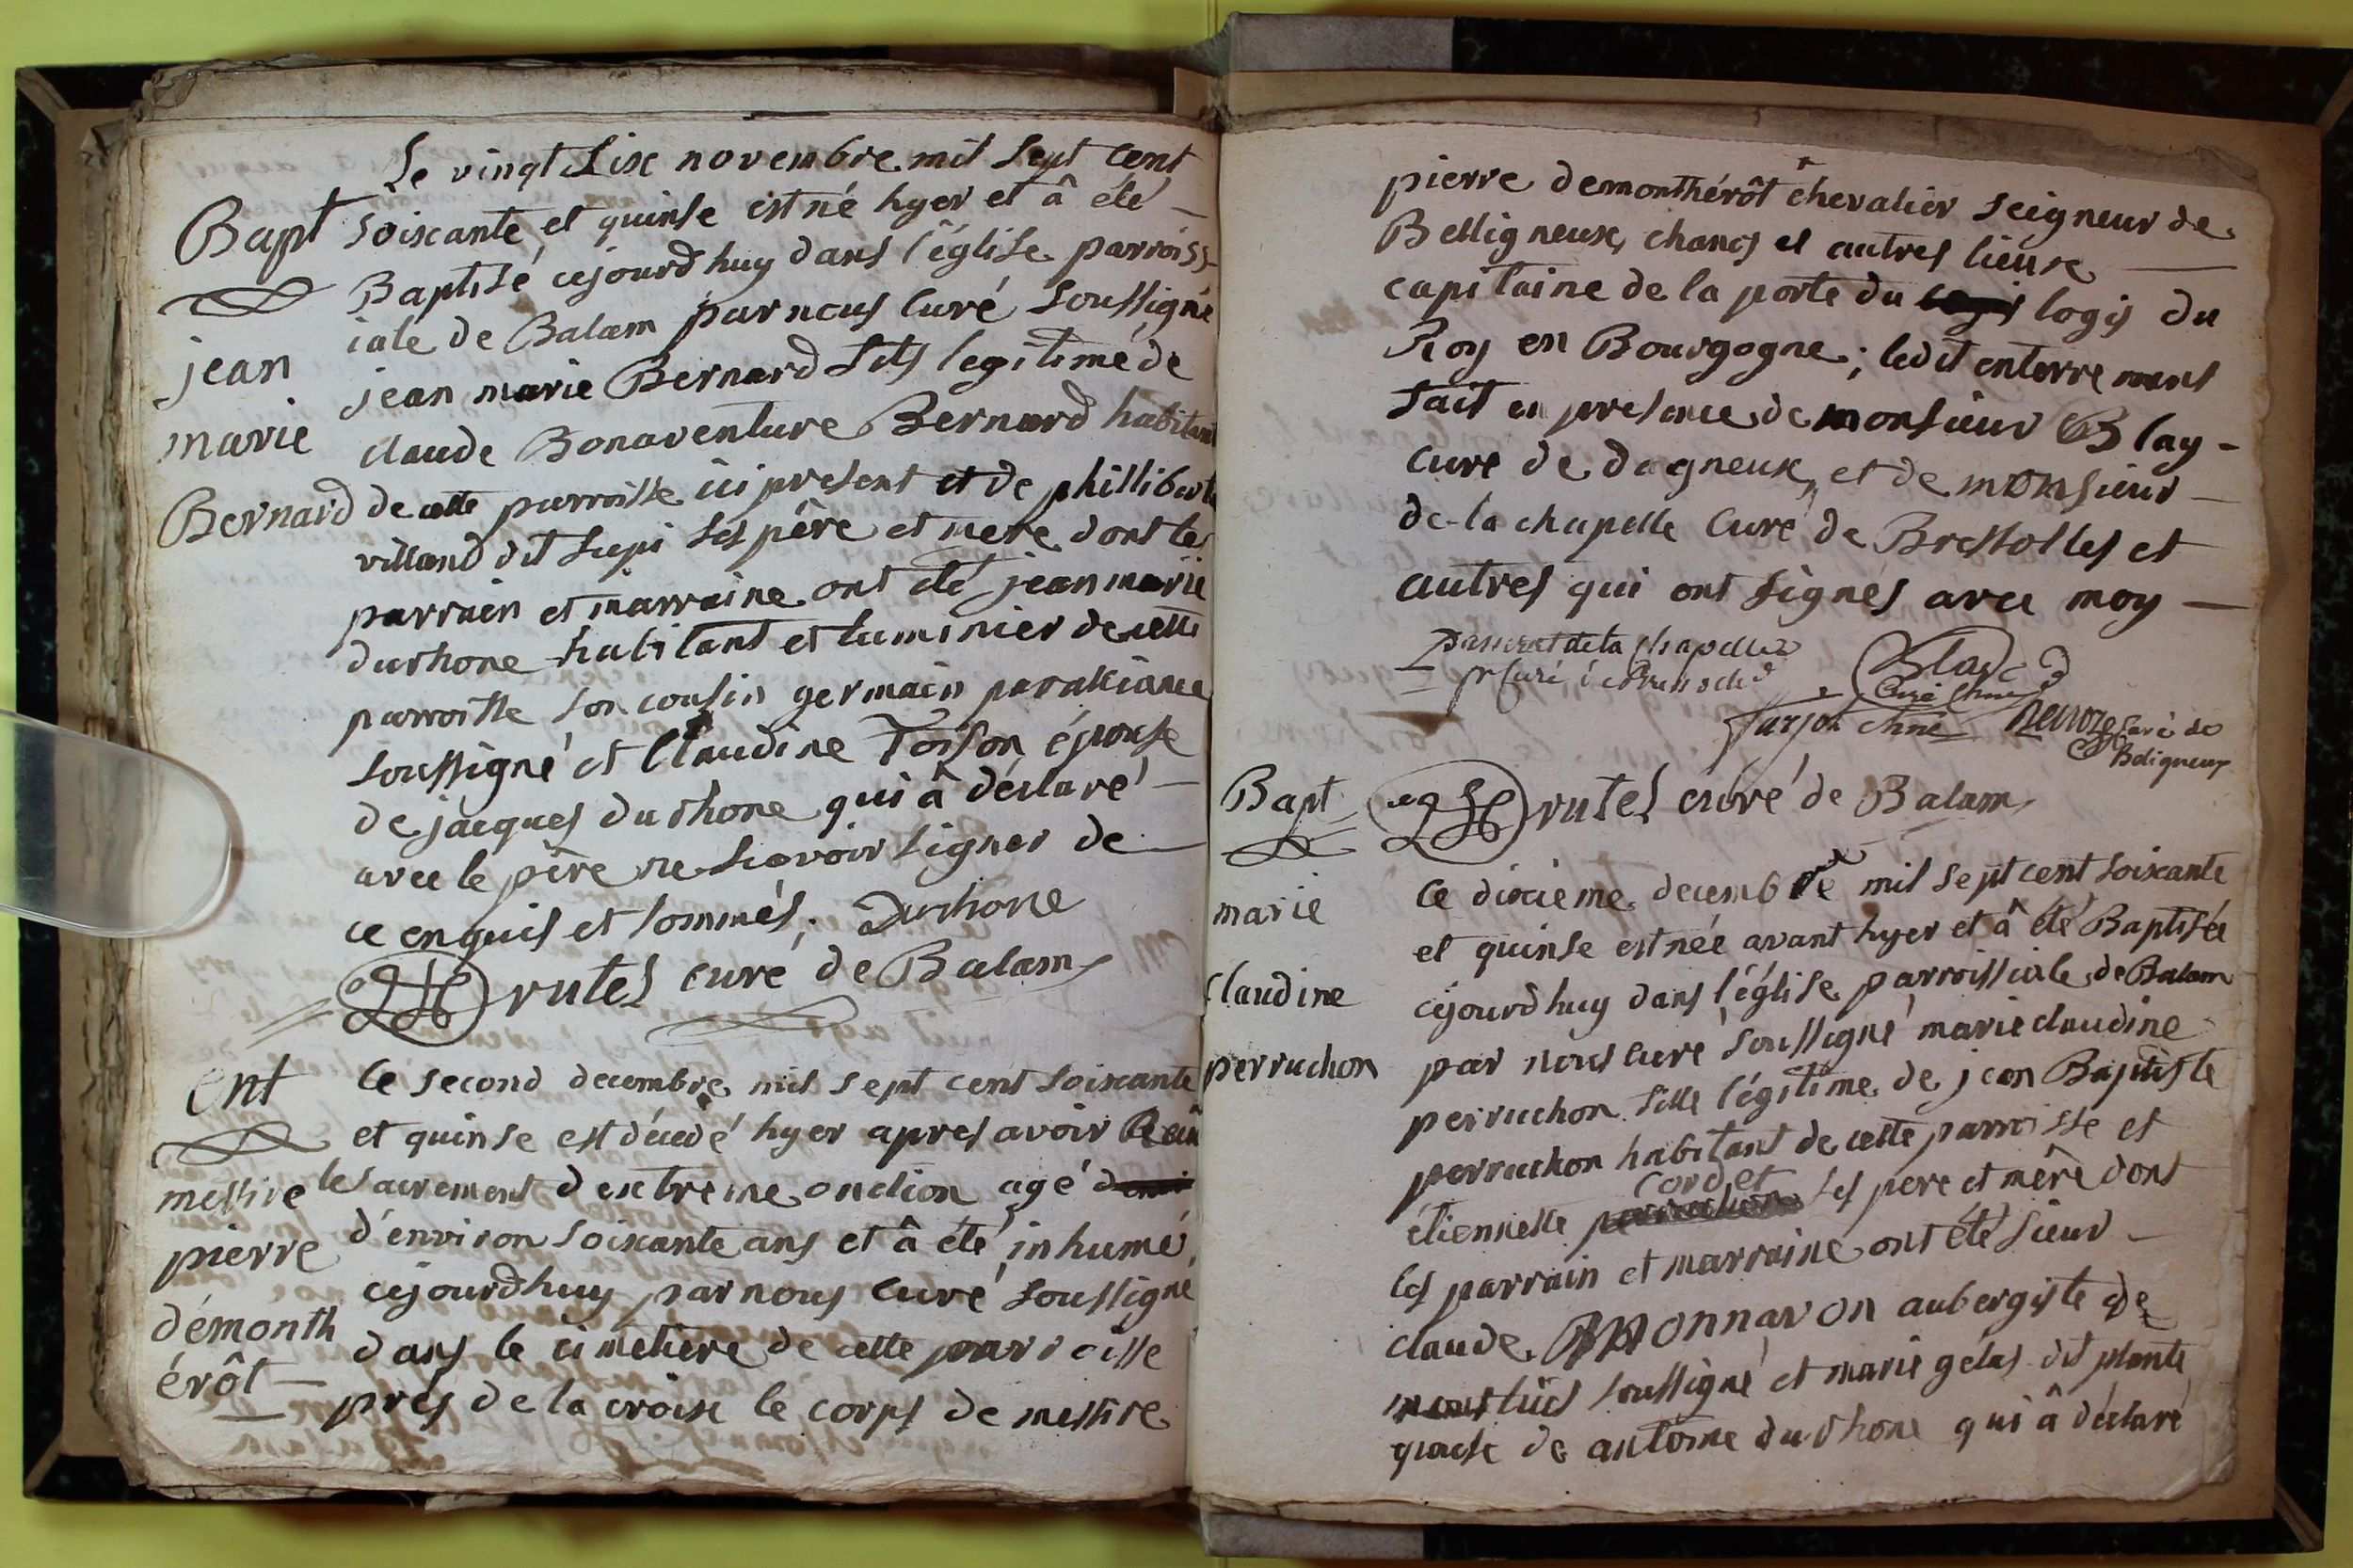 Le vingt sixe novembre mil sept cent
Bapt soixante et quinse est né hyer et â été
Baptisé cejourdhuy dans l'église parroiss
iale de Balam par nous Curé soussigné
jean
jean marie Bernard fils legitime de
marie
claude Bonaventure Bernard habitant
Bernard de cette parroisse ici present et de philliberte
villand dit ses père et mere dont les
parrain et marraine ont été jean marie
durhone habitant et luminier de cette
parroisse son cousin germain
soussigné et Claudine Toison épouse
de jacques durhone qui â déclaré
avec le père ne sçavoir signer de
ce enquis et sommés. Durhone
Brutel curé de Balam
Ent
Ce second decembre mil sept cent soixante
et quinse est décedé hyer apres avoir Reçû
messire le sacrement d'extreme onction agé
pierre d'environ soixante ans et â été inhumé
cejourdhuy par nous curé soussigné
démonth dans le cimetière de cette parroisse
érôt
près de la croix le corps de messire
pierre demonthérôt chevalier seigneur de
Belligneux, chanes et autres lieux
capitaine de la porte du logis du
Roy en Bourgogne; ledit enterrement
fait en presence de monsieur Blay
curé de dagneux, et de monsieur
de la chapelle Curé de Bressolles et
autres qui ont signés avec moy
passerat de la chapelle
Blay
Curé
curé de
Beligneux
Bapt
Brutel curé de Balam
Ce dixieme decembre mil sept cent soixante
marie
et quinse est née avant hyer et â été Baptisée
Claudine cejourdhuy dans l'église parroissiale de Balam
par nous curé soussigné marie claudine
perruchon
perruchon fille légitime de jean Baptiste
perruchon habitant de cette parroisse et
cordet
étiennette perruchon ses pere et mère dont
les parrain et marraine ont été sieur
claude Monnaron aubergiste de
montluel soussigné et marie gélas dit plante
épouse de antoine durhone qui â déclaré